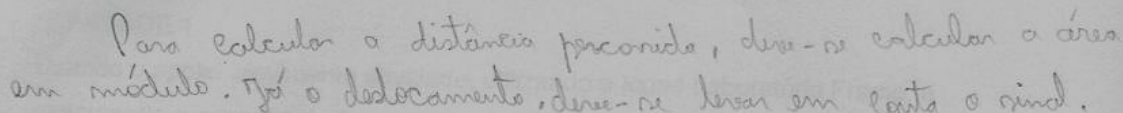 Para calcular a distância percorrida, deve-se calcular a área
em módulo. Já o deslocamento, deve-se levar em conta o sinal.